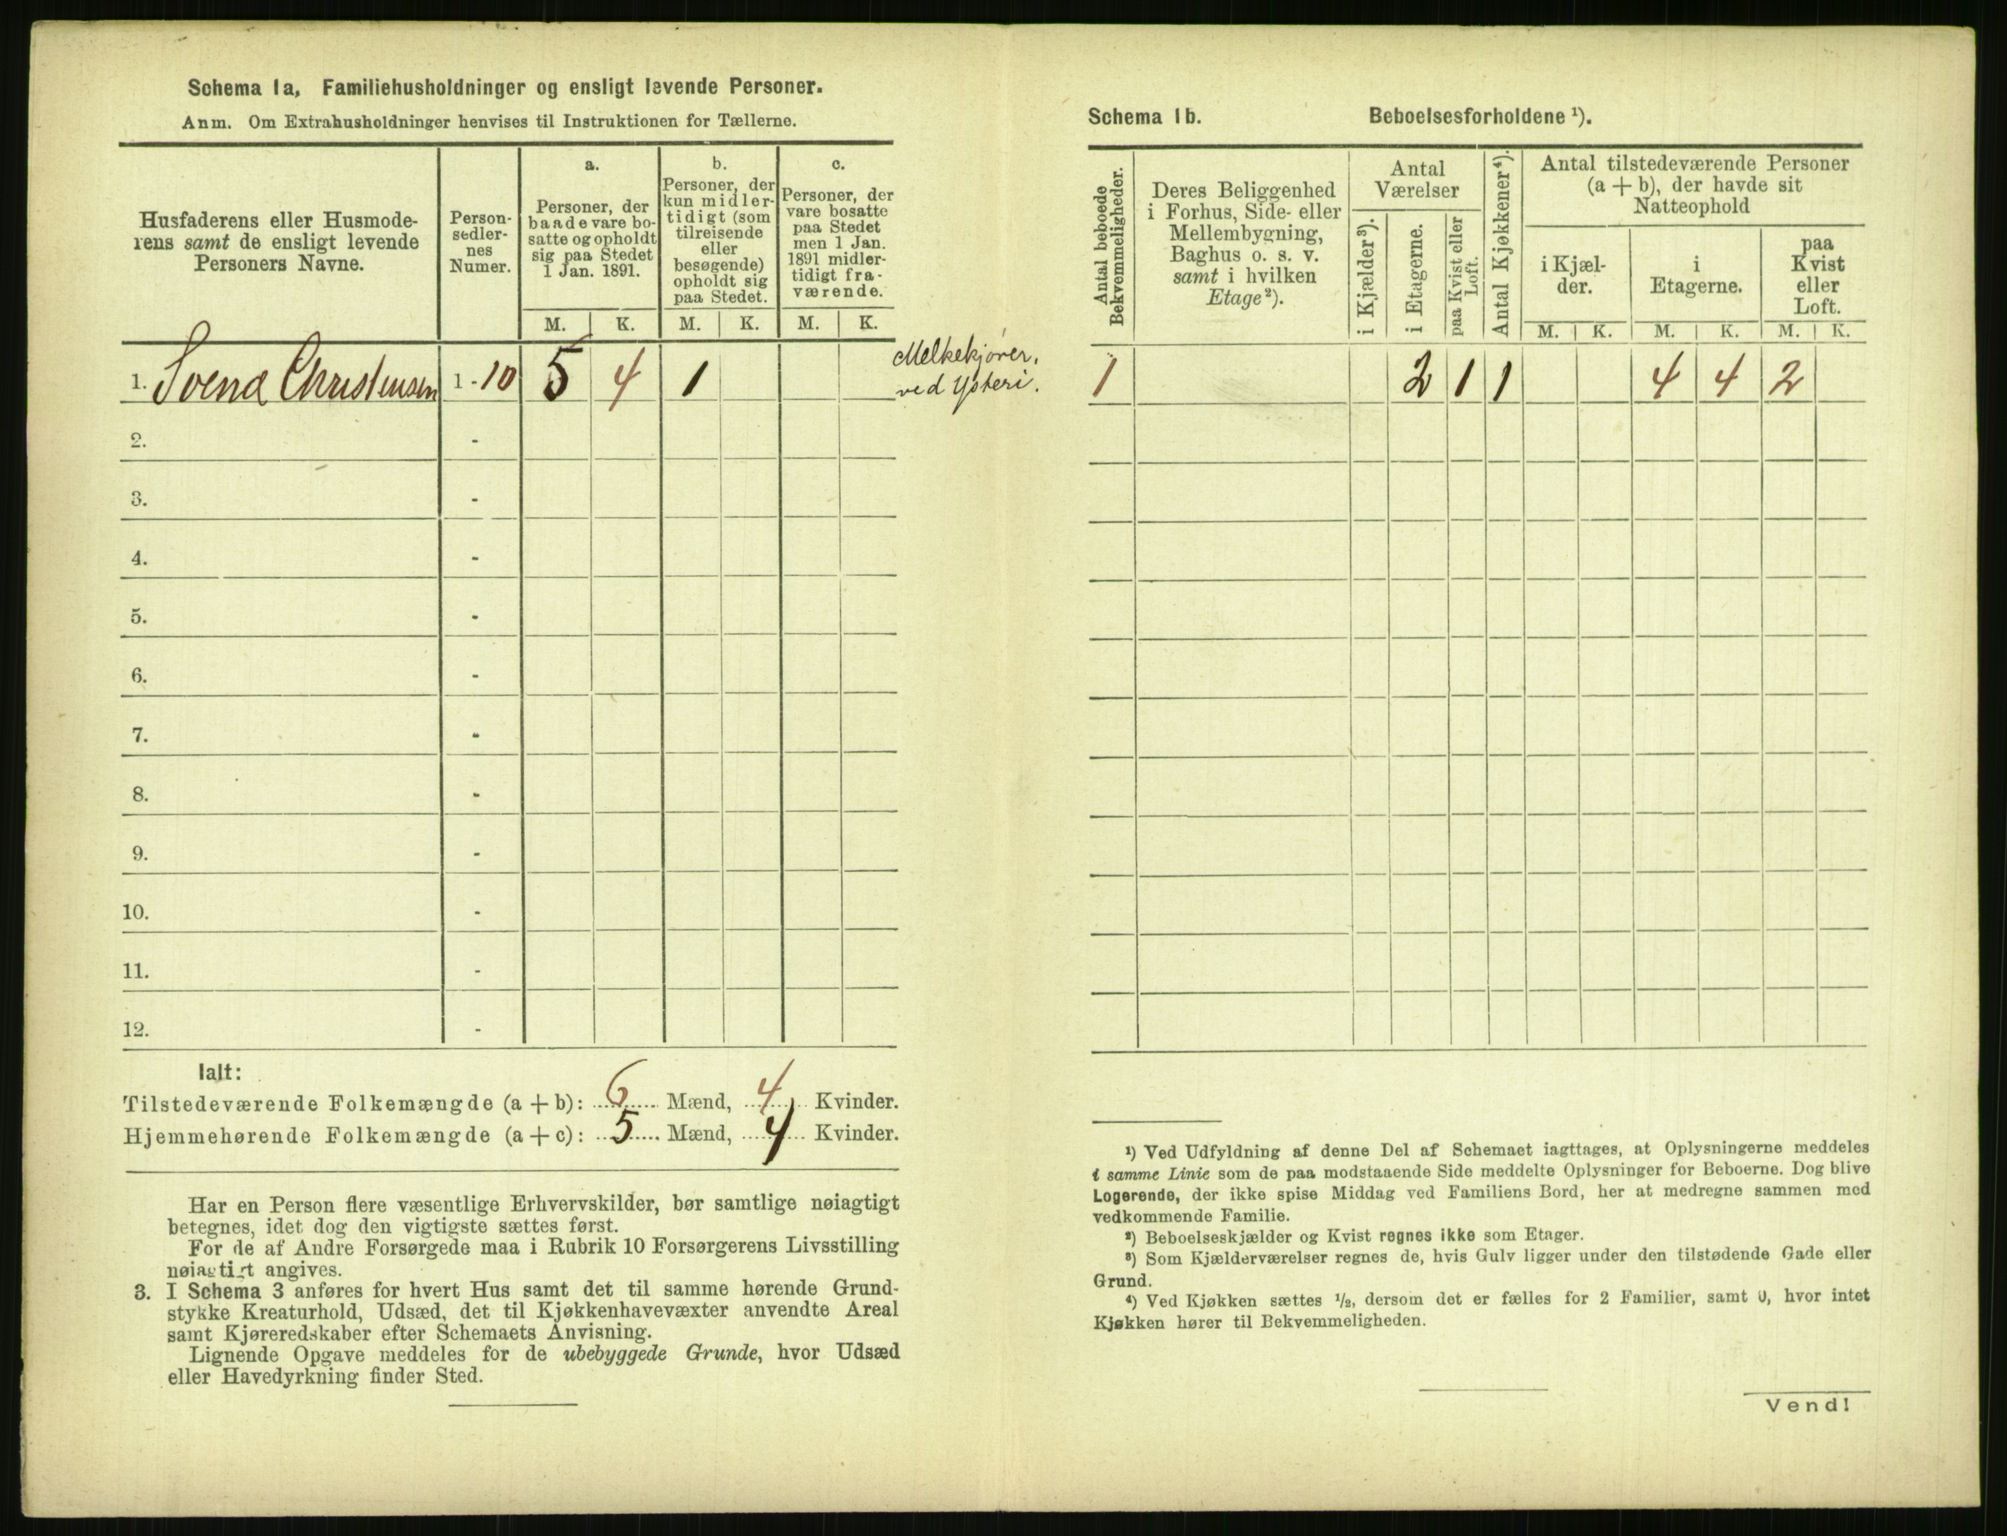 Schema 1a, Familiehusholdninger og ensligt levende Personer.
Anm. Om Extrahusholdninger henvises til Instruktionen for Tællerne.
Husfaderens eller Husmode-
rens samt de ensligt levende
Personers Navne.
Person-
sedler-
nes
Numer.
a.
Personer, der
baade vare bo-
satte og opholdt
sig paa Stedet
1 Jan. 1891.
b.
Personer, der
kun midler-
tidigt (som
tilreisende
eller
besøgende)
opholdt sig
paa Stedet.
c.
Personer, der
vare bosatte
paa Stedet
men 1 Jan.
1891 midler-
tidigt fra-
værende.
M. K. M. K. M. K.
1. Svend Christensen 1 - 10 5 4 1
Melkekjører,
ved Ysteri.
2. -
3. -
4. -
5. -
6. -
7. -
8. -
9. -
10. -
11. -
12. -
Ialt:
Tilstedeværende Folkemængde (a + b): 6 Mænd, 4 Kvinder.
Hjemmehørende Folkemængde (a + c): 5 Mænd, 4 Kvinder.
Har en Person flere væsentlige Erhvervskilder, bør samtlige nøiagtigt
betegnes, idet dog den vigtigste sættes først.
For de af Andre Forsørgede maa i Rubrik 10 Forsørgerens Livsstilling
nøiagtigt angives.
3. I Schema 3 anføres for hvert Hus samt det til samme hørende Grund-
stykke Kreaturhold, Udsæd, det til Kjøkkenhavevæxter anvendte Areal
samt Kjøreredskaber efter Schemaets Anvisning.
Lignende Opgave meddeles for de ubebyggede Grunde, hvor Udsæd
eller Havedyrkning finder Sted.
Schema 1b. Beboelsesforholdene ¹).
Antal beboede
Bekvemmeligheder.
Deres Beliggenhed
i Forhus, Side- eller
Mellembygning,
Baghus o. s. v.
samt i hvilken
Etage²).
Antal
Værelser
i Kjælder³).
i Etagerne.
paa Kvist eller
Loft.
Antal Kjøkkener⁴).
Antal tilstedeværende Personer
(a + b), der havde sit
Natteophold
i Kjæl-
der.
i
Etagerne.
paa
Kvist
eller
Loft.
M. K. M. K. M. K.
1 2 1 1 4 4 2
¹) Ved Udfyldning af denne Del af Schemaet iagttages, at Oplysningerne meddeles
i samme Linie som de paa modstaaende Side meddelte Oplysninger for Beboerne. Dog blive
Logerende, der ikke spise Middag ved Familiens Bord, her at medregne sammen med
vedkommende Familie.
²) Beboelseskjælder og Kvist regnes ikke som Etager.
³) Som Kjælderværelser regnes de, hvis Gulv ligger under den tilstødende Gade eller
Grund.
⁴) Ved Kjøkken sættes ½, dersom det er fælles for 2 Familier, samt 0, hvor intet
Kjøkken hører til Bekvemmeligheden.
Vend!